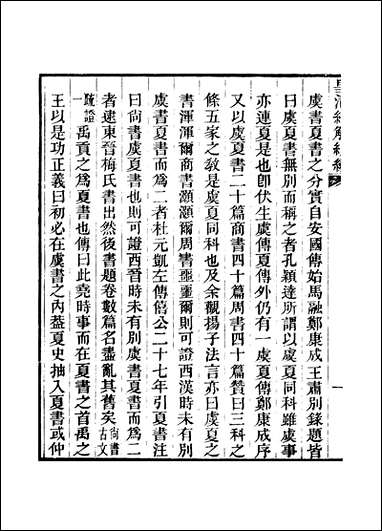 虞書夏書之分實自安國傳始馬融鄭康成王肅別錄題皆
曰虞夏書無別而稱之者孔穎達所謂以虞夏同科雖虞事
亦連夏是也卽伏生虞傳夏傳外仍有一虞夏傳鄭康成序
又以虞夏書二十篇商書四十篇周書四十篇贊曰三科之
條五家之教是虞夏同科也及余觀揚子法言亦曰虞夏之
書渾渾爾商書灝灝爾周書噩噩爾則可證西漢時未有別
虞書夏書而爲二者杜元凱左傳僖公二十七年引夏書注
曰尙書虞夏書也則可證西晉時未有別虞書夏書而爲二
者逮東晉梅氏書出然後書題卷數篇名盡亂其舊矣尙書古文
疏證一禹貢之爲夏書也傳曰此堯時事而在夏書之首禹之
王以是功正義曰初必在虞書之內葢夏史抽入夏書或仲